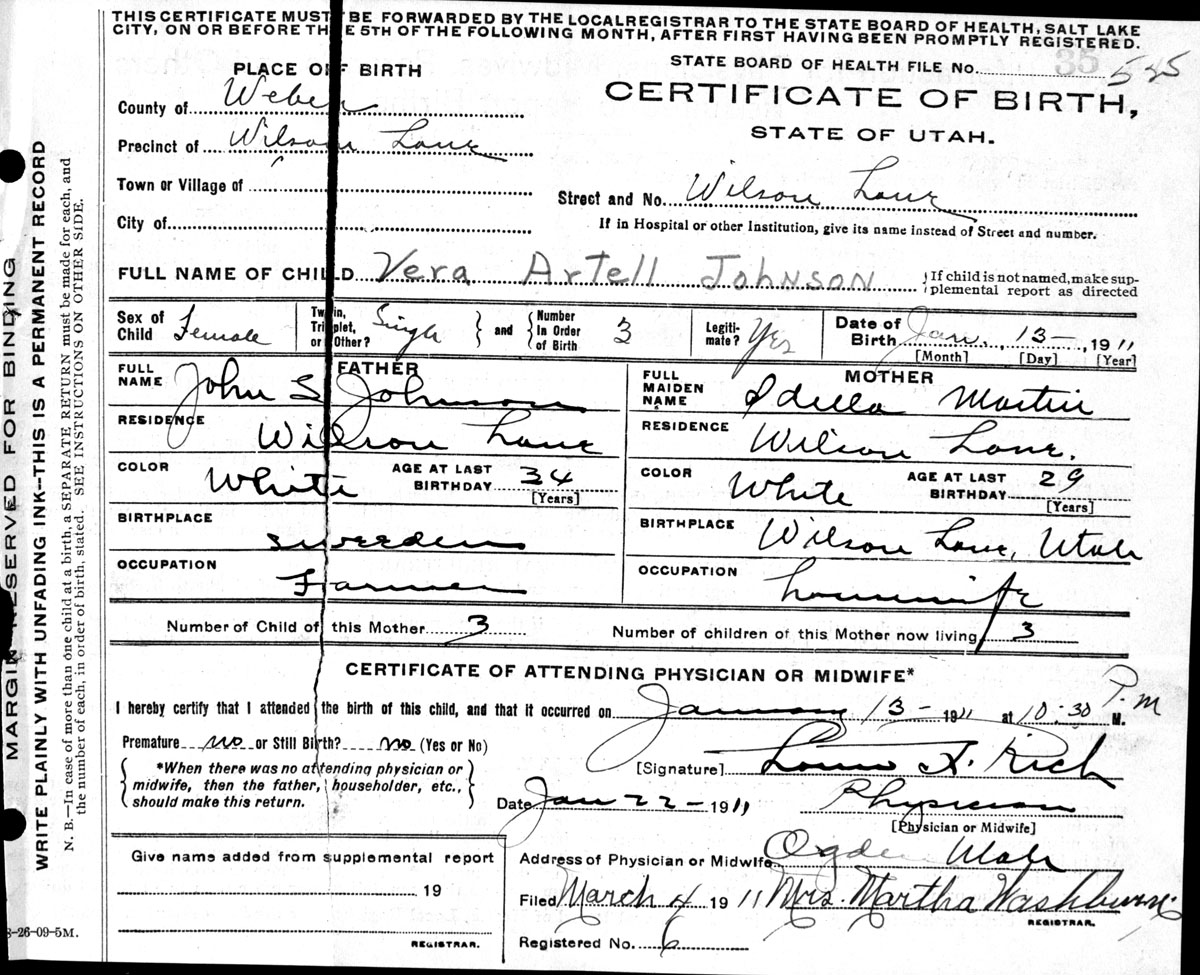 THIS CERTIFICATE MUST BE FORWARDED BY THE LOCALREGISTRAR TO THE STATE BOARD OF HEALTH, SALT LAKE
CITY, ON OR BEFORE THE 5TH OF THE FOLLOWING MONTH, AFTER FIRST HAVING BEEN PROMPTLY REGISTERED.
STATE BOARD OF HEALTH FILE No. 35 525
PLACE OF BIRTH
CERTIFICATE OF BIRTH,
STATE OF UTAH.
County of Weber
Precinct of Wilson Lane
Town or Village of
Street and No. Wilson Lane
City of
If in Hospital or other Institution, give its name instead of Street and number.
FULL NAME OF CHILD Vera Artell Johnson
{If child is not named, make sup-
plemental report as directed
Sex of Child Female
Twin, Triplet, or Other? Single } and { Number In Order of Birth 3
Legiti-mate? Yes
Date of Birth Jan. 13- 1911
[Month] [Day] [Year]
FATHER
FULL NAME John S Johnson
RESIDENCE Wilson Lane
COLOR White AGE AT LAST BIRTHDAY 34
[Years]
BIRTHPLACE Sweeden
OCCUPATION Farmer
MOTHER
FULL MAIDEN NAME Idella Martin
RESIDENCE Wilson Lane.
COLOR White AGE AT LAST BIRTHDAY 29
[Years]
BIRTHPLACE Wilson Lane, Utah
OCCUPATION housewife
Number of Child of this Mother 3 Number of children of this Mother now living 3
CERTIFICATE OF ATTENDING PHYSICIAN OR MIDWIFE*
I hereby certify that I attended the birth of this child, and that it occurred on January 13- 1911 at 10:30 P.M M.
Premature no or Still Birth? no (Yes or No)
{ *When there was no attending physician or
midwife, then the father, householder, etc.,
should make this return. }
[Signature] A. Rich
Date Jan 22- 1911 Physician
[Physician or Midwife]
Address of Physician or Midwife Ogden Utah
Filed March 4 1911 Mrs. Martha Washburn.
REGISTRAR.
Registered No. 6
Give name added from supplemental report
19
REGISTRAR.
MARGIN RESERVED FOR BINDING
WRITE PLAINLY WITH UNFADING INK--THIS IS A PERMANENT RECORD
N. B.—In case of more than one child at a birth, a SEPARATE RETURN must be made for each, and
the number of each, in order of birth, stated. SEE INSTRUCTIONS ON OTHER SIDE.
8-26-09-5M.